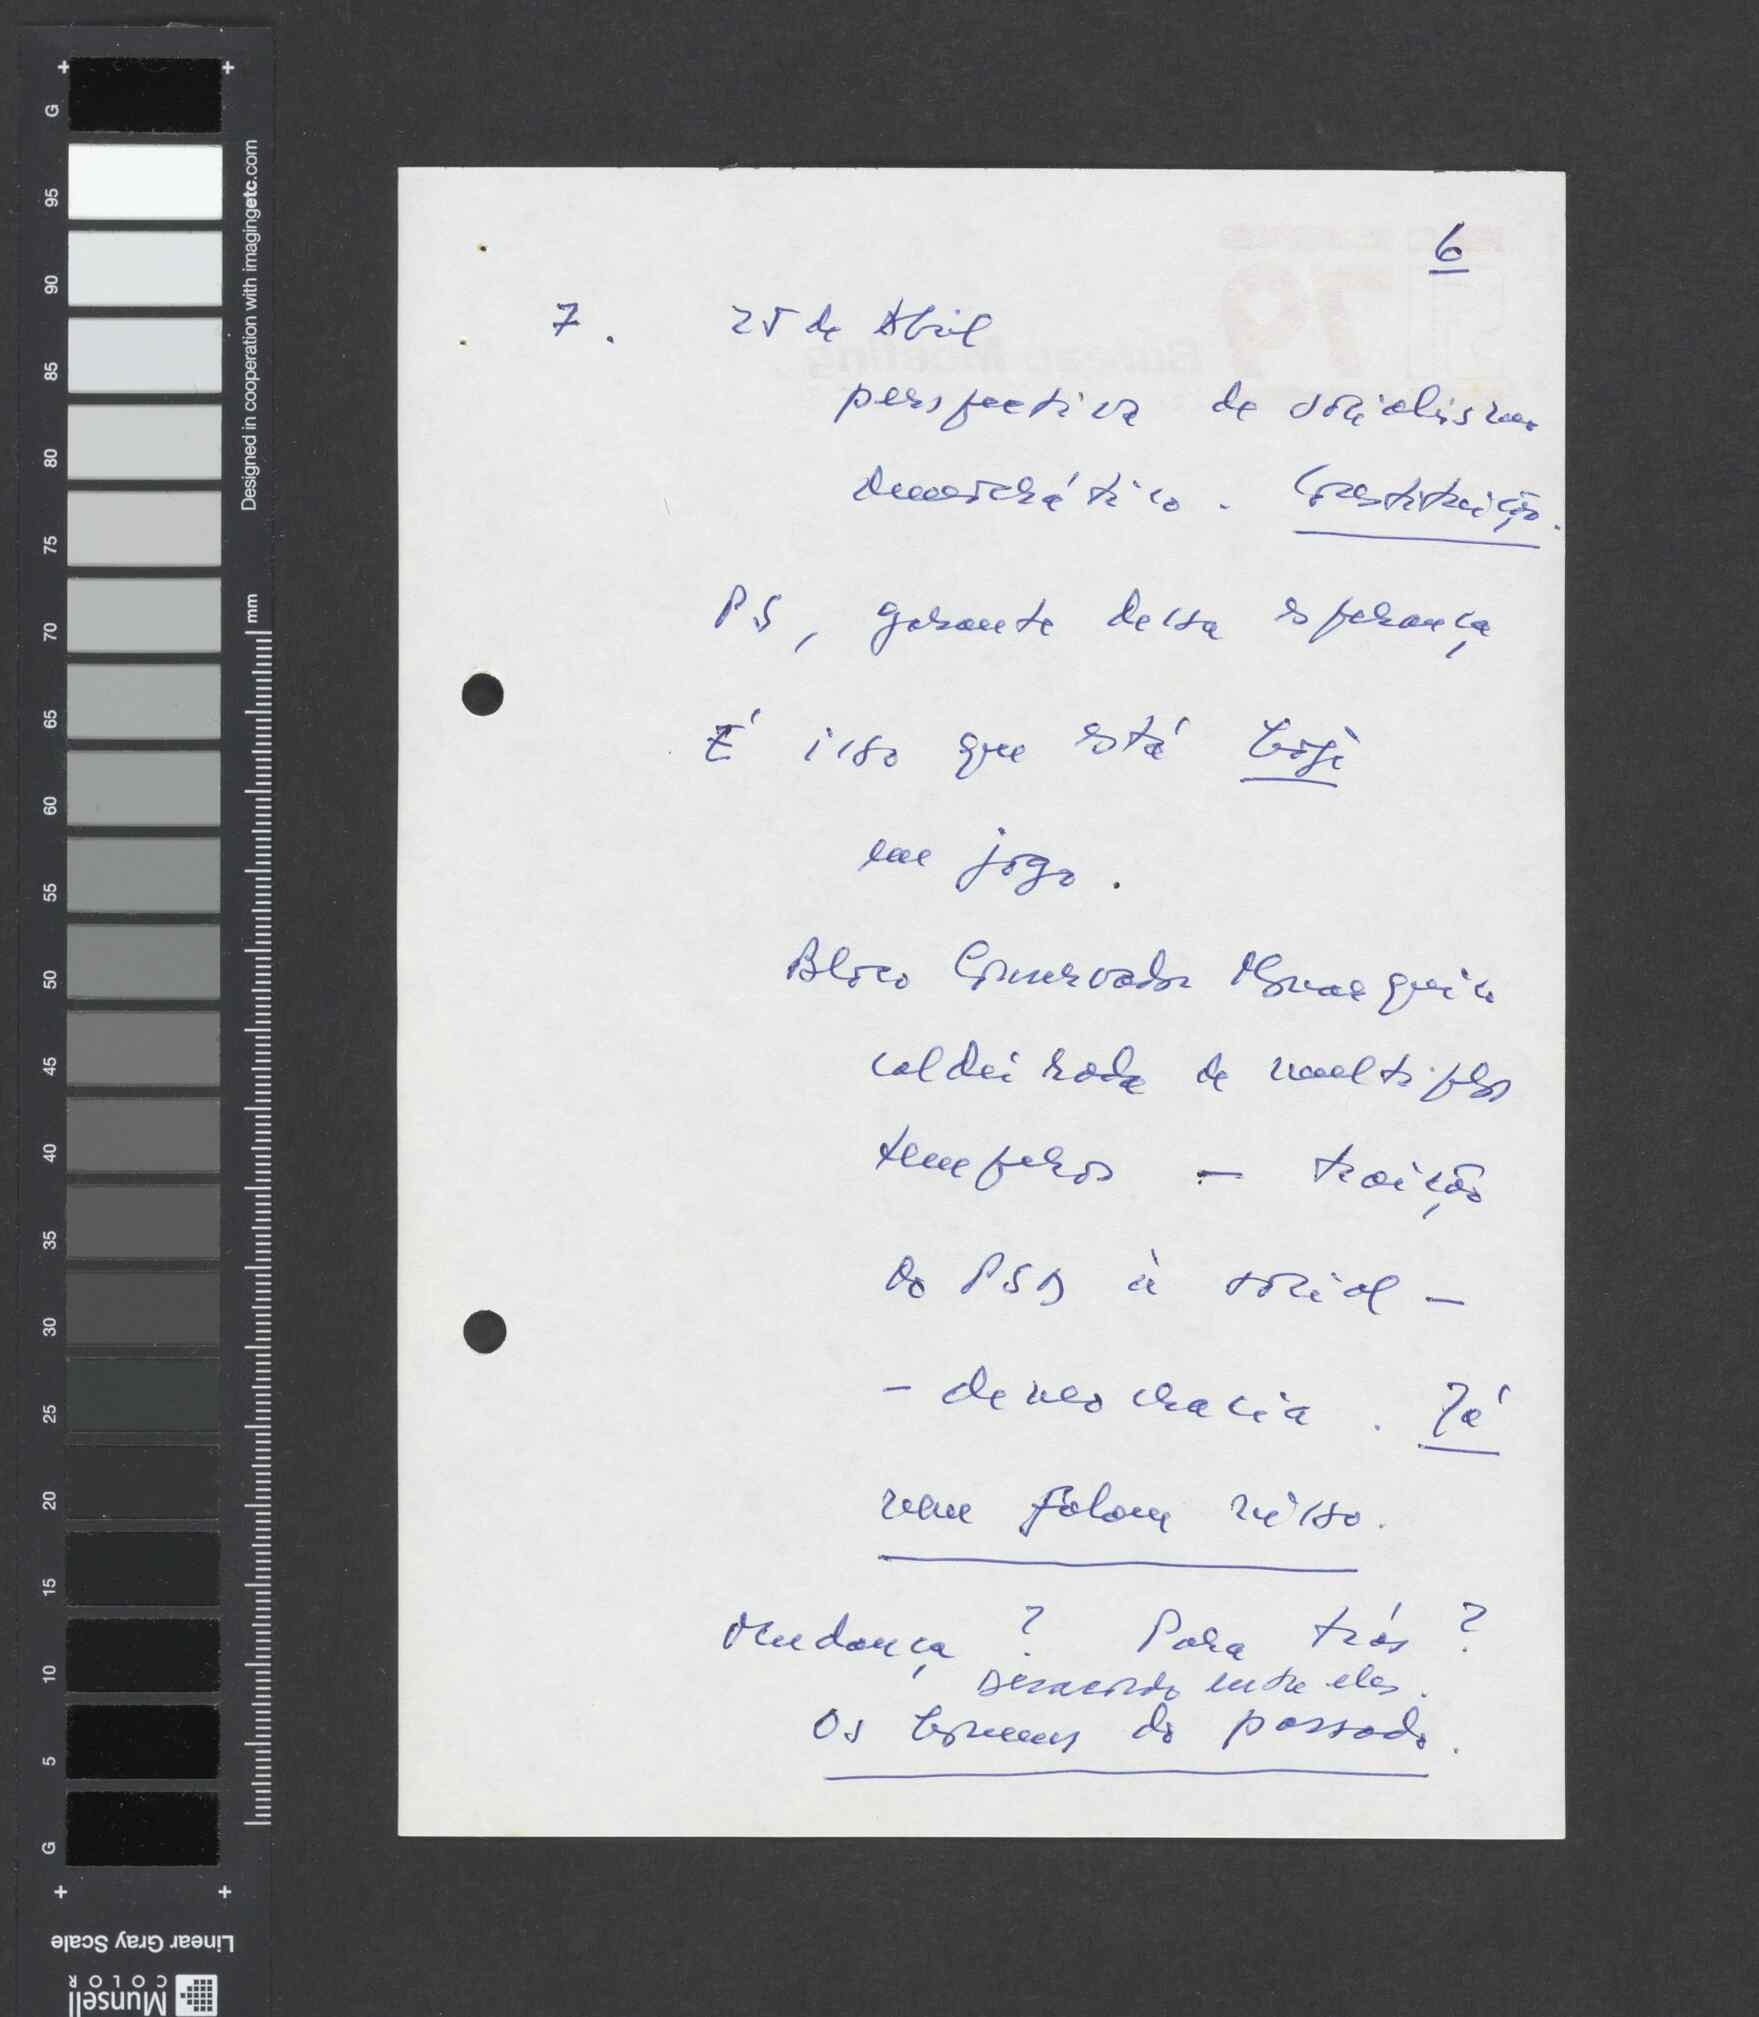 6
7. 25 de Abril
perspectiva de socialismo
democrático. Constituição.
PS, garante dessa esperança
É isso que está hoje
em jogo.
Bloco Conservador Monarquico
caldeirada de multiplos
temperos — traição
do PSD à social -
- democracia. Já
nem falam nisso.
Mudança? Para trás?
Desacordo entre eles.
Os homens do passado.
G
95
90
85
80
75
70
65
60
55
50
45
40
35
30
25
20
15
10
5
G
Designed in cooperation with imagingetc.com
mm
Linear Gray Scale
Munsell
COLOR
Bureau Meeting